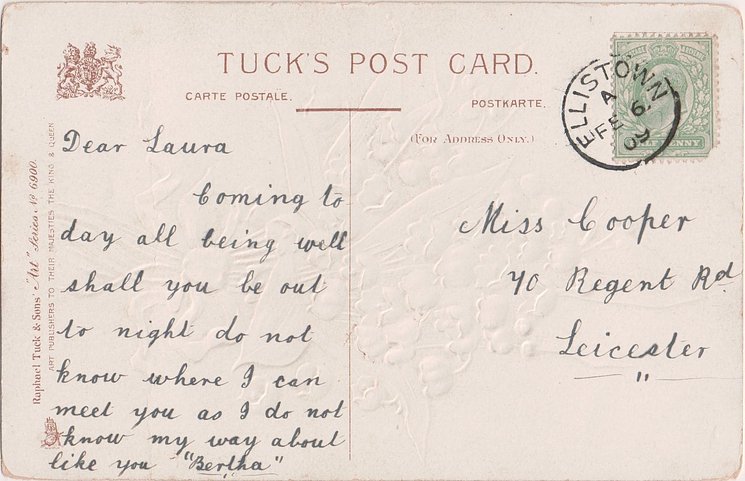 TUCK'S POST CARD.
CARTE POSTALE.
POSTKARTE.
(FOR ADDRESS ONLY.)
ELLISTOWN
A
FE 6.
09
HALFPENNY
Raphael Tuck & Sons' "Art" Series No 6900.
ART PUBLISHERS TO THEIR MAJESTIES THE KING & QUEEN
Dear Laura
Coming to
day all being well
shall you be out
to night do not
know where I can
meet you as I do not
know my way about
like you "Bertha"
Miss Cooper
70 Regent Rd
Leicester
"